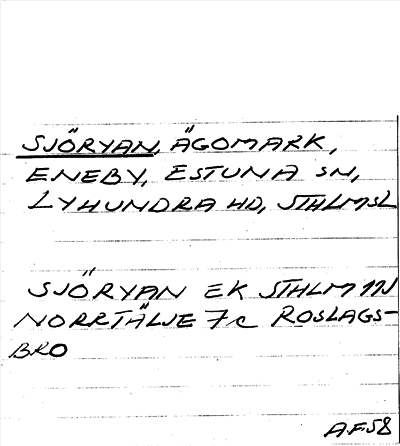 SJÖRYAN, ÄGOMARK,
ENEBY, ESTUNA SN,
LYHUNDRA HD, STHLMSL
SJÖRYAN EK STHLM 11J
NORRTÄLJE 7c ROSLAGS-
BRO
A.F.58